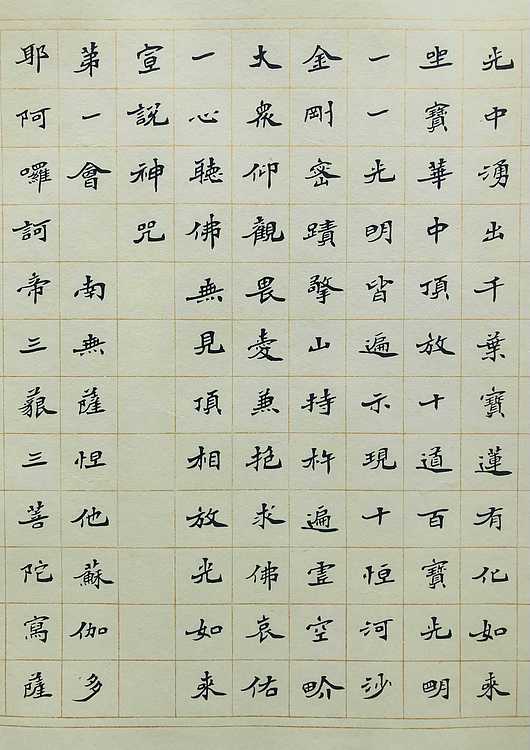 光中湧出千葉寶蓮有化如來
坐寶華中頂放十道百寶光明
一一光明皆遍示現十恒河沙
金剛密蹟擎山持杵遍虛空界
大眾仰觀畏愛兼抱求佛哀佑
一心聽佛無見頂相放光如來
宣說神咒
第一會 南無薩怛他蘇伽多
耶阿囉訶帝三藐三菩陀寫薩